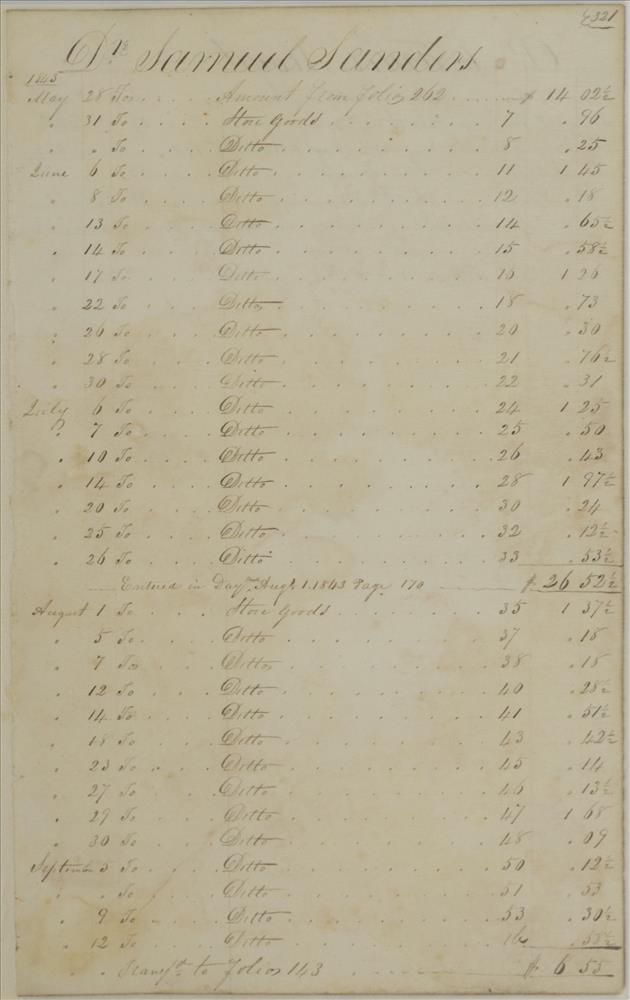 321
Dr. Samuel Sanders.
1843
May 28 To . . . . Amount from folio 262 . . . . $ 14 02½
" 31 To . . . . Store Goods . . . . 7 . 96
" " To . . . . Ditto . . . . 8 . 25
June 6 To . . . . Ditto . . . . 11 1 45
" 8 To . . . . Ditto . . . . 12 . 18
" 13 To . . . . Ditto . . . . 14 . 65½
" 14 To . . . . Ditto . . . . 15 . 58½
" 17 To . . . . Ditto . . . . 16 1 26
" 22 To . . . . Ditto . . . . 18 . 73
" 26 To . . . . Ditto . . . . 20 . 30
" 28 To . . . . Ditto . . . . 21 . 76½
" 30 To . . . . Ditto . . . . 22 . 31
July 6 To . . . . Ditto . . . . 24 1 25
" 7 To . . . . Ditto . . . . 25 . 50
" 10 To . . . . Ditto . . . . 26 . 43
" 14 To . . . . Ditto . . . . 28 1 97½
" 20 To . . . . Ditto . . . . 30 . 24
" 25 To . . . . Ditto . . . . 32 . 12½
" 26 To . . . . Ditto . . . . 33 . 53½
Entered in Day Augt. 1. 1843 Page 170 $ 26 52½
August 1 To . . . . Store Goods . . . . 35 1 37½
" 5 To . . . . Ditto . . . . 37 . 18
" 7 To . . . . Ditto . . . . 38 . 18
" 12 To . . . . Ditto . . . . 40 . 28½
" 14 To . . . . Ditto . . . . 41 . 51½
" 18 To . . . . Ditto . . . . 43 . 42½
" 23 To . . . . Ditto . . . . 45 . 14
" 27 To . . . . Ditto . . . . 46 . 13½
" 29 To . . . . Ditto . . . . 47 1 68
" 30 To . . . . Ditto . . . . 48 . 09
September 5 To . . . . Ditto . . . . 50 . 12½
" " To . . . . Ditto . . . . 51 . 53
" 9 To . . . . Ditto . . . . 53 . 30½
" 12 To . . . . Ditto . . . . . 58½
" " Transfd. to Folio 143 $ 6 55